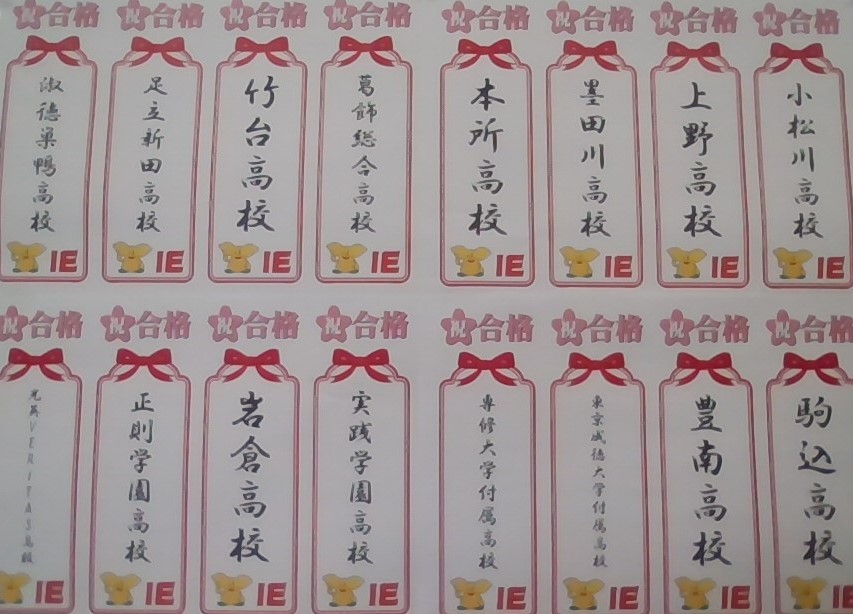 祝合格
淑徳巣鴨高校
IE
祝合格
足立新田高校
IE
祝合格
竹台高校
IE
祝合格
葛飾総合高校
IE
祝合格
本所高校
IE
祝合格
墨田川高校
IE
祝合格
上野高校
IE
祝合格
小松川高校
IE
祝合格
光英VERITAS高校
IE
祝合格
正則学園高校
IE
祝合格
岩倉高校
IE
祝合格
実践学園高校
IE
祝合格
専修大学付属高校
IE
祝合格
東京成徳大学付属高校
IE
祝合格
豊南高校
IE
祝合格
駒込高校
IE